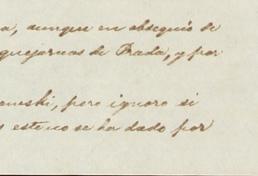 a, aunque en obsequio de
quejarnos de Prada, y por
owski, pero ignoro si
s este no se ha dado por